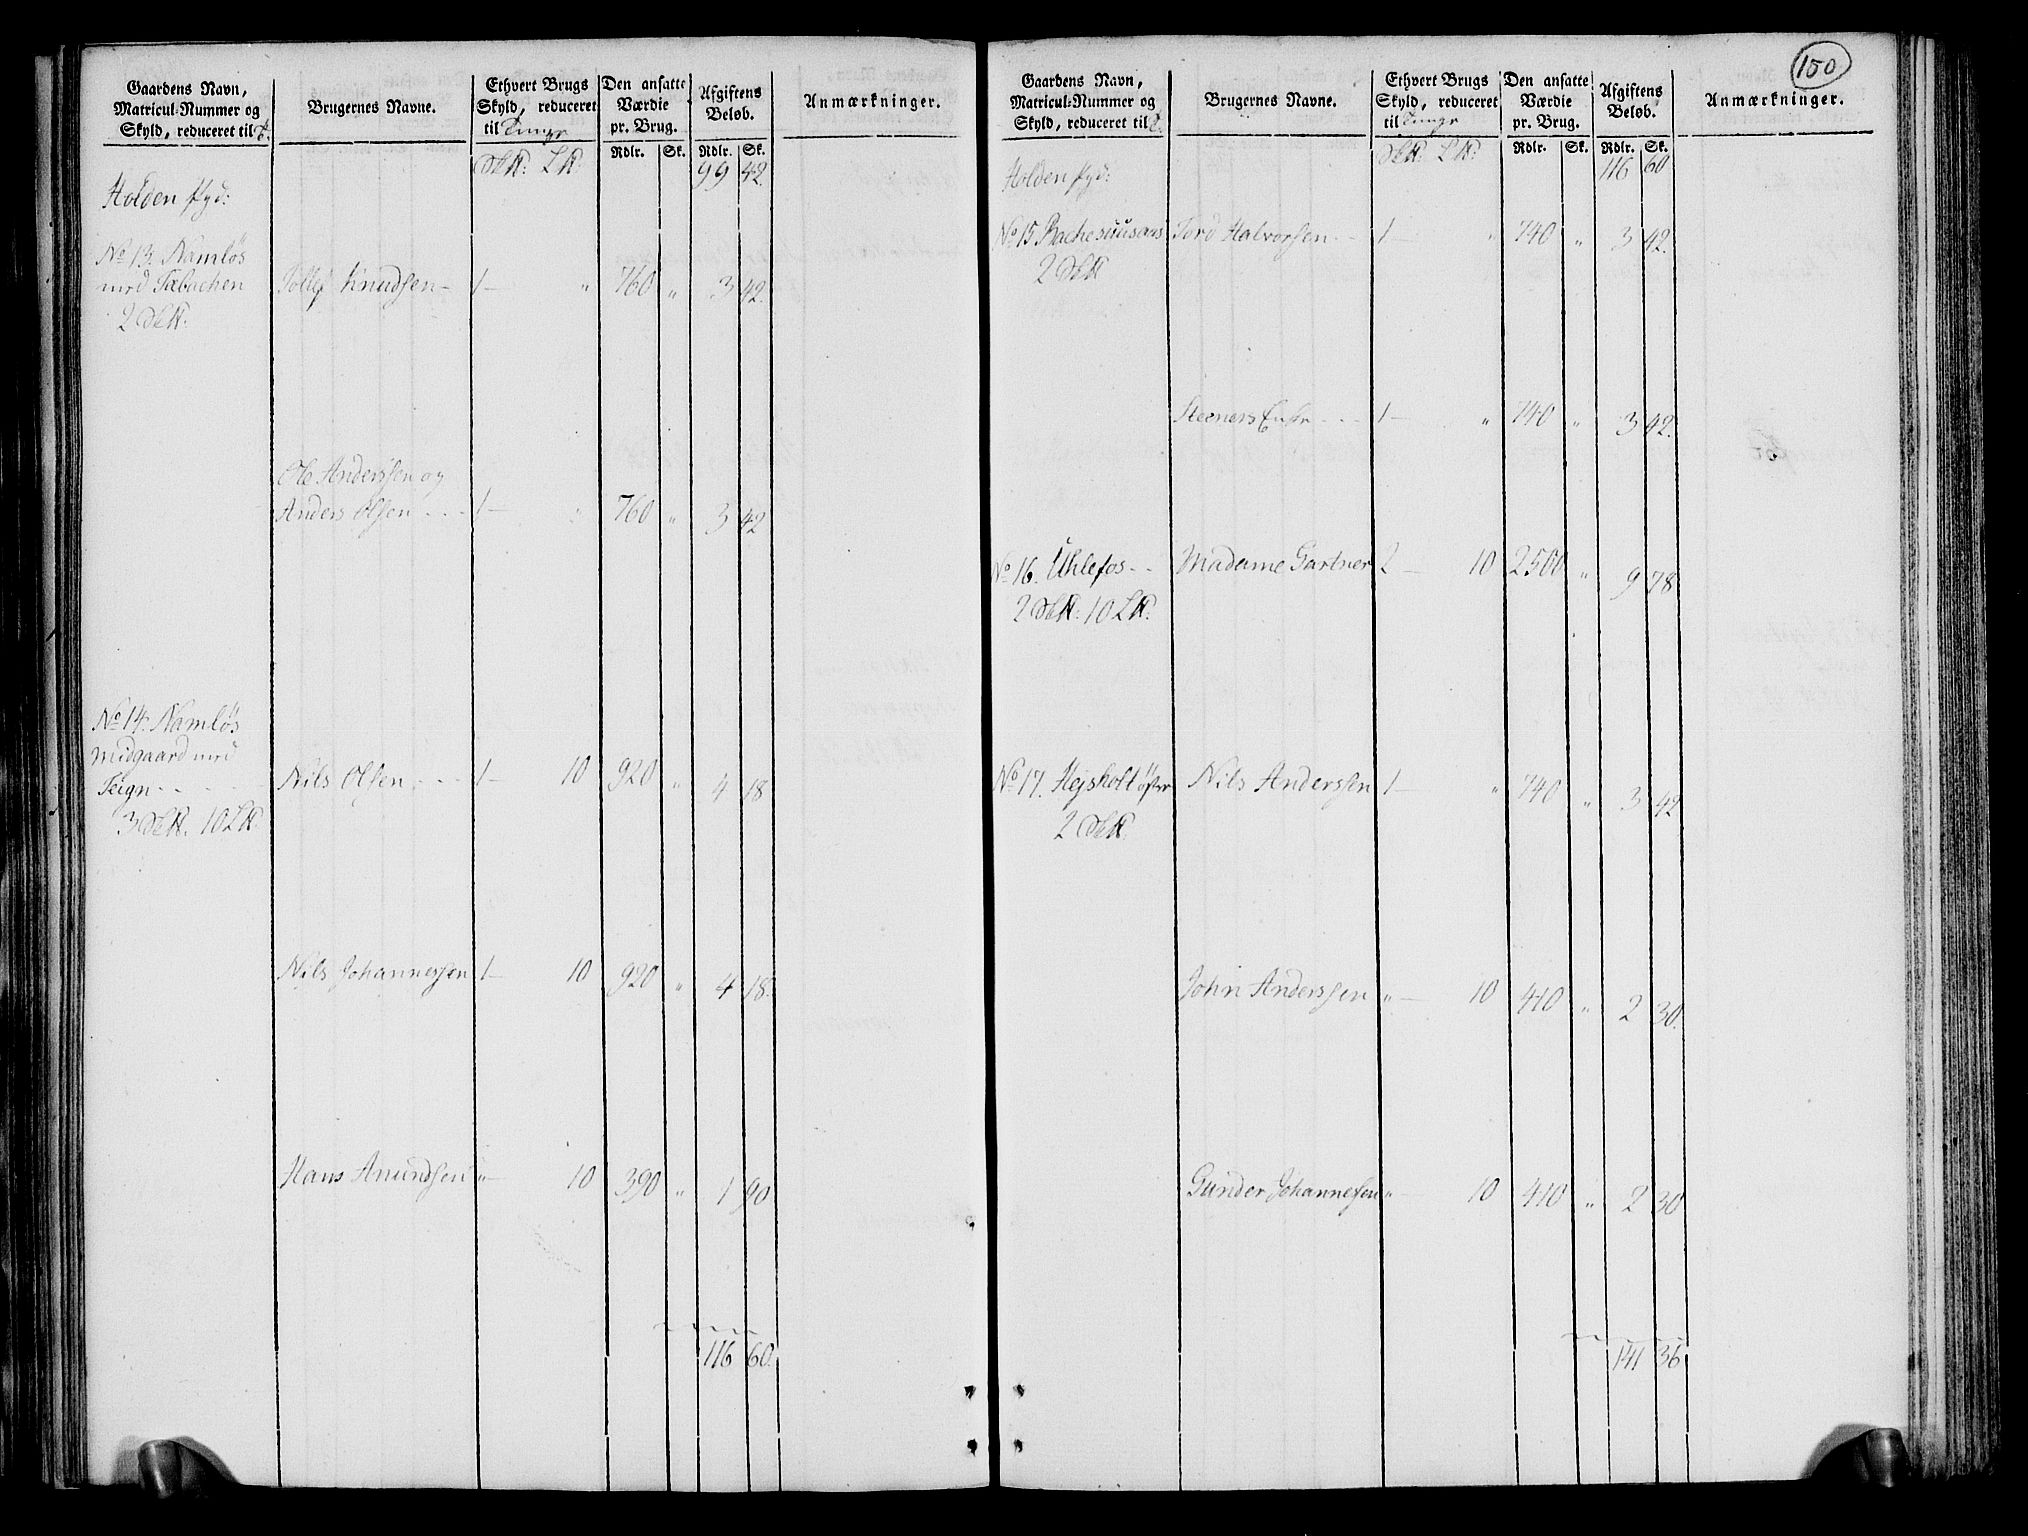 Gaardens Navn,
Matricul-Nummer og
Skyld, reduceret til
Brugernes Navne.
Ethvert Brugs
Skyld, reduceret
til Tunge
Den ansatte
Værdie
pr. Brug.
Afgiftens
Beløb.
Anmærkninger.
Rdlr. Sk. Rdlr. Sk.
99 42.
Holden
No 13. Namløs
med Tæbachen
2
Tollef Knudsen 1 " 760 " 3 42.
Ole Anderssen og
Anders Olsen 1 " 760 " 3 42
No 14. Namløs
Midgaard med
Teign
3 10
Nils Olsen 1 10 920 " 4 18
Nils Johannessen 1 10 920 " 4 18.
Hans Amundsen " 10 390 " 1 90
116 60.
150
Gaardens Navn,
Matricul-Nummer og
Skyld, reduceret til
Brugernes Navne.
Ethvert Brugs
Skyld, reduceret
til Tunge
Den ansatte
Værdie
pr. Brug.
Afgiftens
Beløb.
Anmærkninger.
Rdlr. Sk. Rdlr. Sk.
116 60
Holden
No 15 Halvorsen 1 " 740 " 3 42.
2
Steeners Enke 1 " 740 " 3 42.
No 16. Uhlefos Madame Gartner 2 10 2500 " 9 78
2 10
No 17. Hejsholt øfre Nils Anderssen 1 " 740 " 3 42
2
John Anderssen " 10 410 " 2 30.
Gunder Johannesen " 10 410 " 2 30
141 36